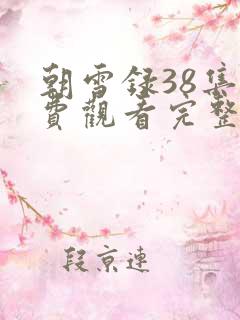 朝雪録38集
費觀看完整
段京連